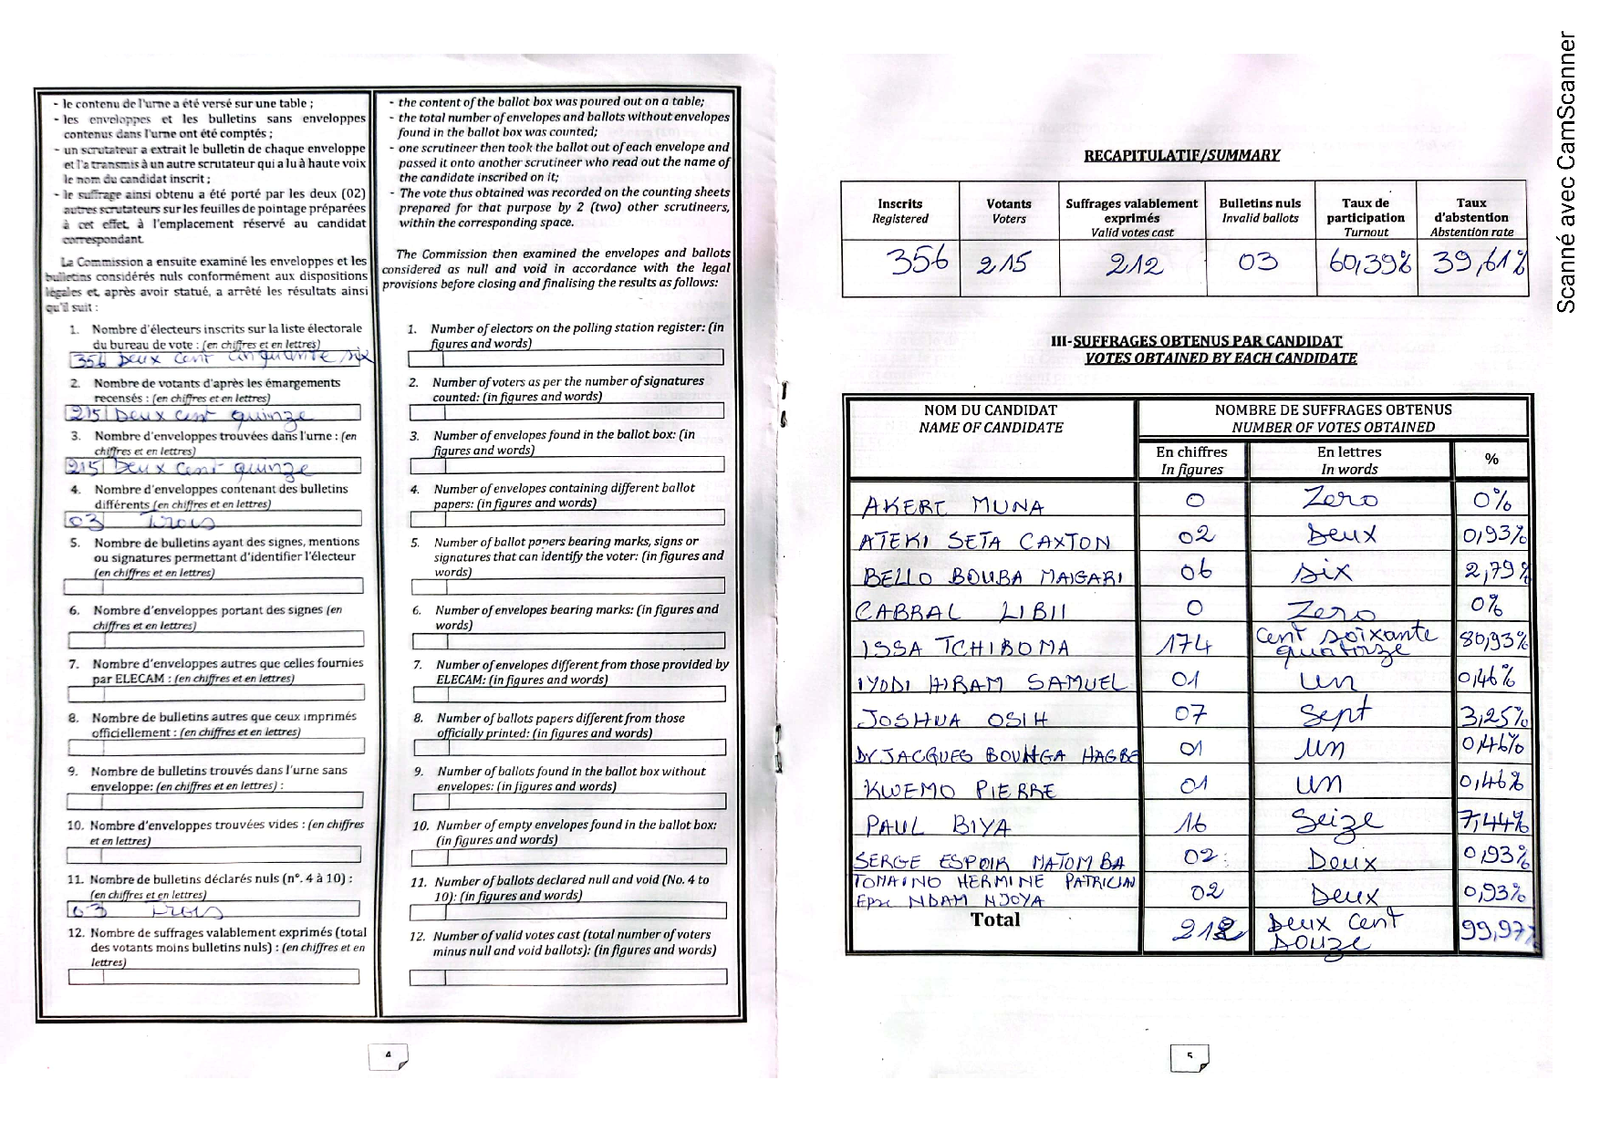 - le contenu de l'urne a été versé sur une table ;
- les enveloppes et les bulletins sans enveloppes
contenus dans l'urne ont été comptés ;
- un scrutateur a extrait le bulletin de chaque enveloppe
et l'a transmis à un autre scrutateur qui a lu à haute voix
le nom du candidat inscrit ;
- le suffrage ainsi obtenu a été porté par les deux (02)
autres scrutateurs sur les feuilles de pointage préparées
à cet effet, à l'emplacement réservé au candidat
correspondant.
La Commission a ensuite examiné les enveloppes et les
bulletins considérés nuls conformément aux dispositions
légales et, après avoir statué, a arrêté les résultats ainsi
qu'il suit :
1. Nombre d'électeurs inscrits sur la liste électorale
du bureau de vote : (en chiffres et en lettres)
356 Deux cent cinquante six
2. Nombre de votants d'après les émargements
recensés : (en chiffres et en lettres)
215 Deux cent quinze
3. Nombre d'enveloppes trouvées dans l'urne : (en
chiffres et en lettres)
215 Deux cent quinze
4. Nombre d'enveloppes contenant des bulletins
différents (en chiffres et en lettres)
03 Trois
5. Nombre de bulletins ayant des signes, mentions
ou signatures permettant d'identifier l'électeur
(en chiffres et en lettres)
6. Nombre d'enveloppes portant des signes (en
chiffres et en lettres)
7. Nombre d'enveloppes autres que celles fournies
par ELECAM : (en chiffres et en lettres)
8. Nombre de bulletins autres que ceux imprimés
officiellement : (en chiffres et en lettres)
9. Nombre de bulletins trouvés dans l'urne sans
enveloppe: (en chiffres et en lettres) :
10. Nombre d'enveloppes trouvées vides : (en chiffres
et en lettres)
11. Nombre de bulletins déclarés nuls (n°. 4 à 10) :
(en chiffres et en lettres)
03 Trois
12. Nombre de suffrages valablement exprimés (total
des votants moins bulletins nuls) : (en chiffres et en
lettres)
- the content of the ballot box was poured out on a table;
- the total number of envelopes and ballots without envelopes
found in the ballot box was counted;
- one scrutineer then took the ballot out of each envelope and
passed it onto another scrutineer who read out the name of
the candidate inscribed on it;
- The vote thus obtained was recorded on the counting sheets
prepared for that purpose by 2 (two) other scrutineers,
within the corresponding space.
The Commission then examined the envelopes and ballots
considered as null and void in accordance with the legal
provisions before closing and finalising the results as follows:
1. Number of electors on the polling station register: (in
figures and words)
2. Number of voters as per the number of signatures
counted: (in figures and words)
3. Number of envelopes found in the ballot box: (in
figures and words)
4. Number of envelopes containing different ballot
papers: (in figures and words)
5. Number of ballot papers bearing marks, signs or
signatures that can identify the voter: (in figures and
words)
6. Number of envelopes bearing marks: (in figures and
words)
7. Number of envelopes different from those provided by
ELECAM: (in figures and words)
8. Number of ballots papers different from those
officially printed: (in figures and words)
9. Number of ballots found in the ballot box without
envelopes: (in figures and words)
10. Number of empty envelopes found in the ballot box:
(in figures and words)
11. Number of ballots declared null and void (No. 4 to
10): (in figures and words)
12. Number of valid votes cast (total number of voters
minus null and void ballots): (in figures and words)
4
RECAPITULATIF/SUMMARY
Inscrits Registered
Votants Voters
Suffrages valablement exprimés Valid votes cast
Bulletins nuls Invalid ballots
Taux de participation Turnout
Taux d'abstention Abstention rate
356 215 212 03 60,39% 39,61%
III-SUFFRAGES OBTENUS PAR CANDIDAT
VOTES OBTAINED BY EACH CANDIDATE
NOM DU CANDIDAT NOMBRE DE SUFFRAGES OBTENUS
NAME OF CANDIDATE NUMBER OF VOTES OBTAINED
En chiffres En lettres %
In figures In words
AKERE MUNA 0 Zero 0%
ATEKI SETA CAXTON 02 Deux 0,93%
BELLO BOUBA MAIGARI 06 Six 2,79%
CABRAL LIBII 0 Zero 0%
ISSA TCHIROMA 174 Cent soixante quatorze 80,93%
IYODI HIRAM SAMUEL 01 un 0,46%
JOSHUA OSIH 07 Sept 3,25%
Dr JACQUES BOUNGA HAGBE 01 un 0,46%
KWEMO PIERRE 01 un 0,46%
PAUL BIYA 16 Seize 7,44%
SERGE ESPOIR MATOMBA 02 Deux 0,93%
TOMAINO HERMINE PATRICIA
Epse NDAM NJOYA 02 Deux 0,93%
Total 212 Deux cent douze 99,97%
5
Scanné avec CamScanner